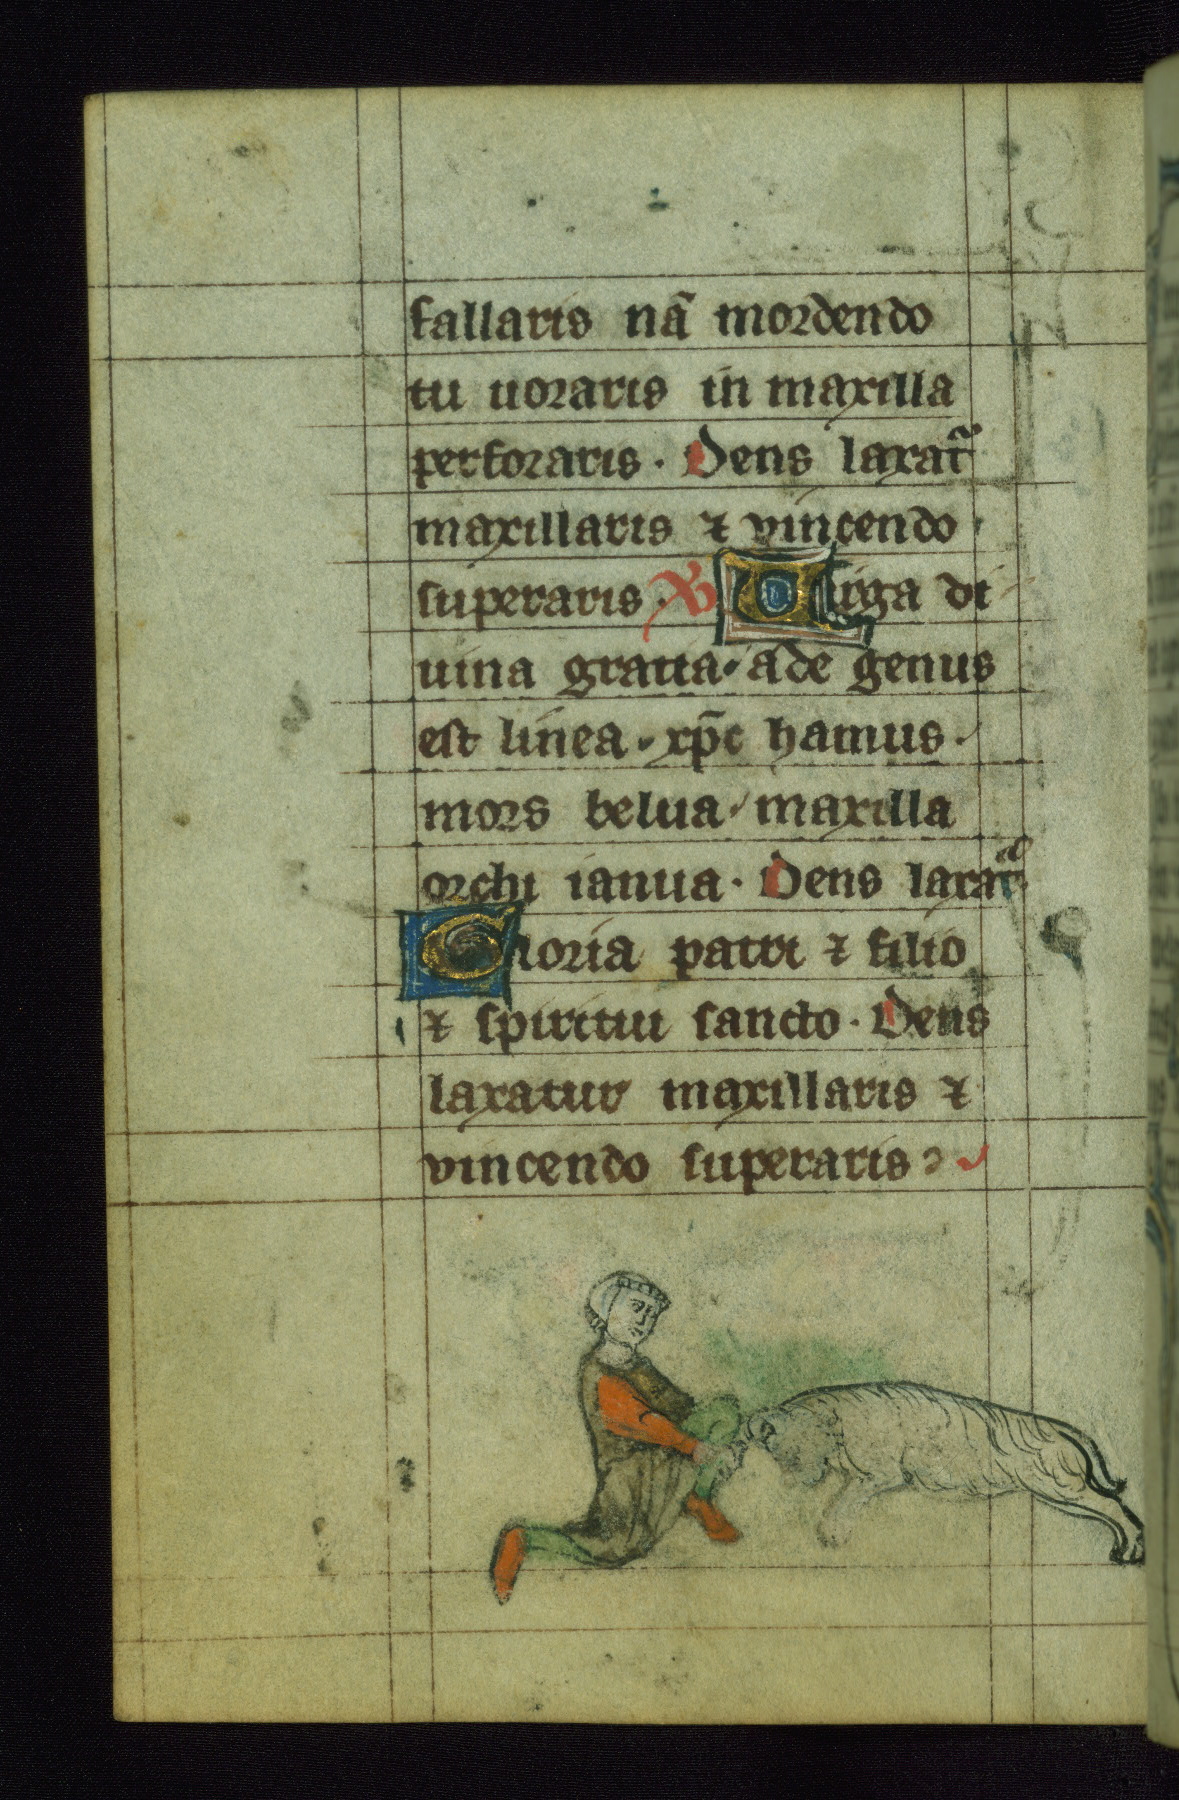 fallaris nã mordendo
tu uoraris in maxilla
perforaris · Dens laxat̃
maxillaris ⁊ vincendo
superaris · Virga di
uina gratia · ade genus
est linea · xp̄c hamus ·
mors belua · maxilla
orchi ianua · Dens laxat̃
Gloria patri ⁊ filio
⁊ spiritui sancto · Dens
laxatur maxillaris ⁊
vincendo superaris